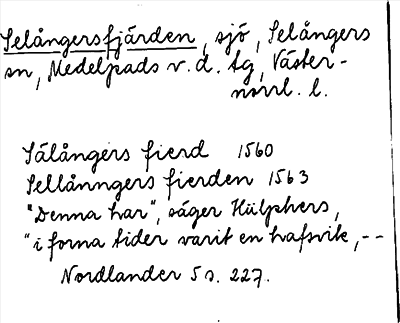 Selångersfjärden, sjö, Selångers
sn, Medelpads v. d. tg, Väster-
norrl. l.
Sålångers fierd 1560
Sellånngers fierden 1563
"Denna har", säger Hülphers,
"i forna tider varit en hafsvik, --
Nordlander 5 s. 227.